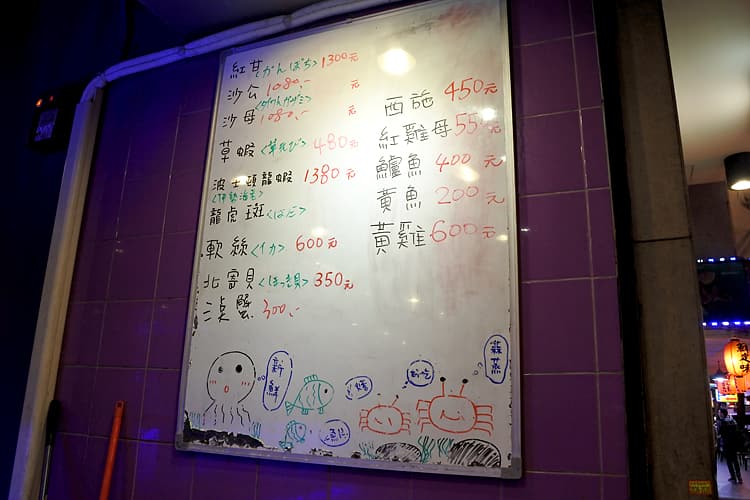 紅甘<かんぱち>1300元
沙公 1080.-
沙母 1080.- 元
草蝦 480元
波士頓龍蝦 1380元
<伊勢海老>
龍虎斑<はた>
軟絲<イカ> 600元
北寄貝<ほっき貝> 350元
300.-
西施 450元
紅雞母 55元
鱸魚 400元
黃魚 200元
黃雞 600元
新鮮
好吃